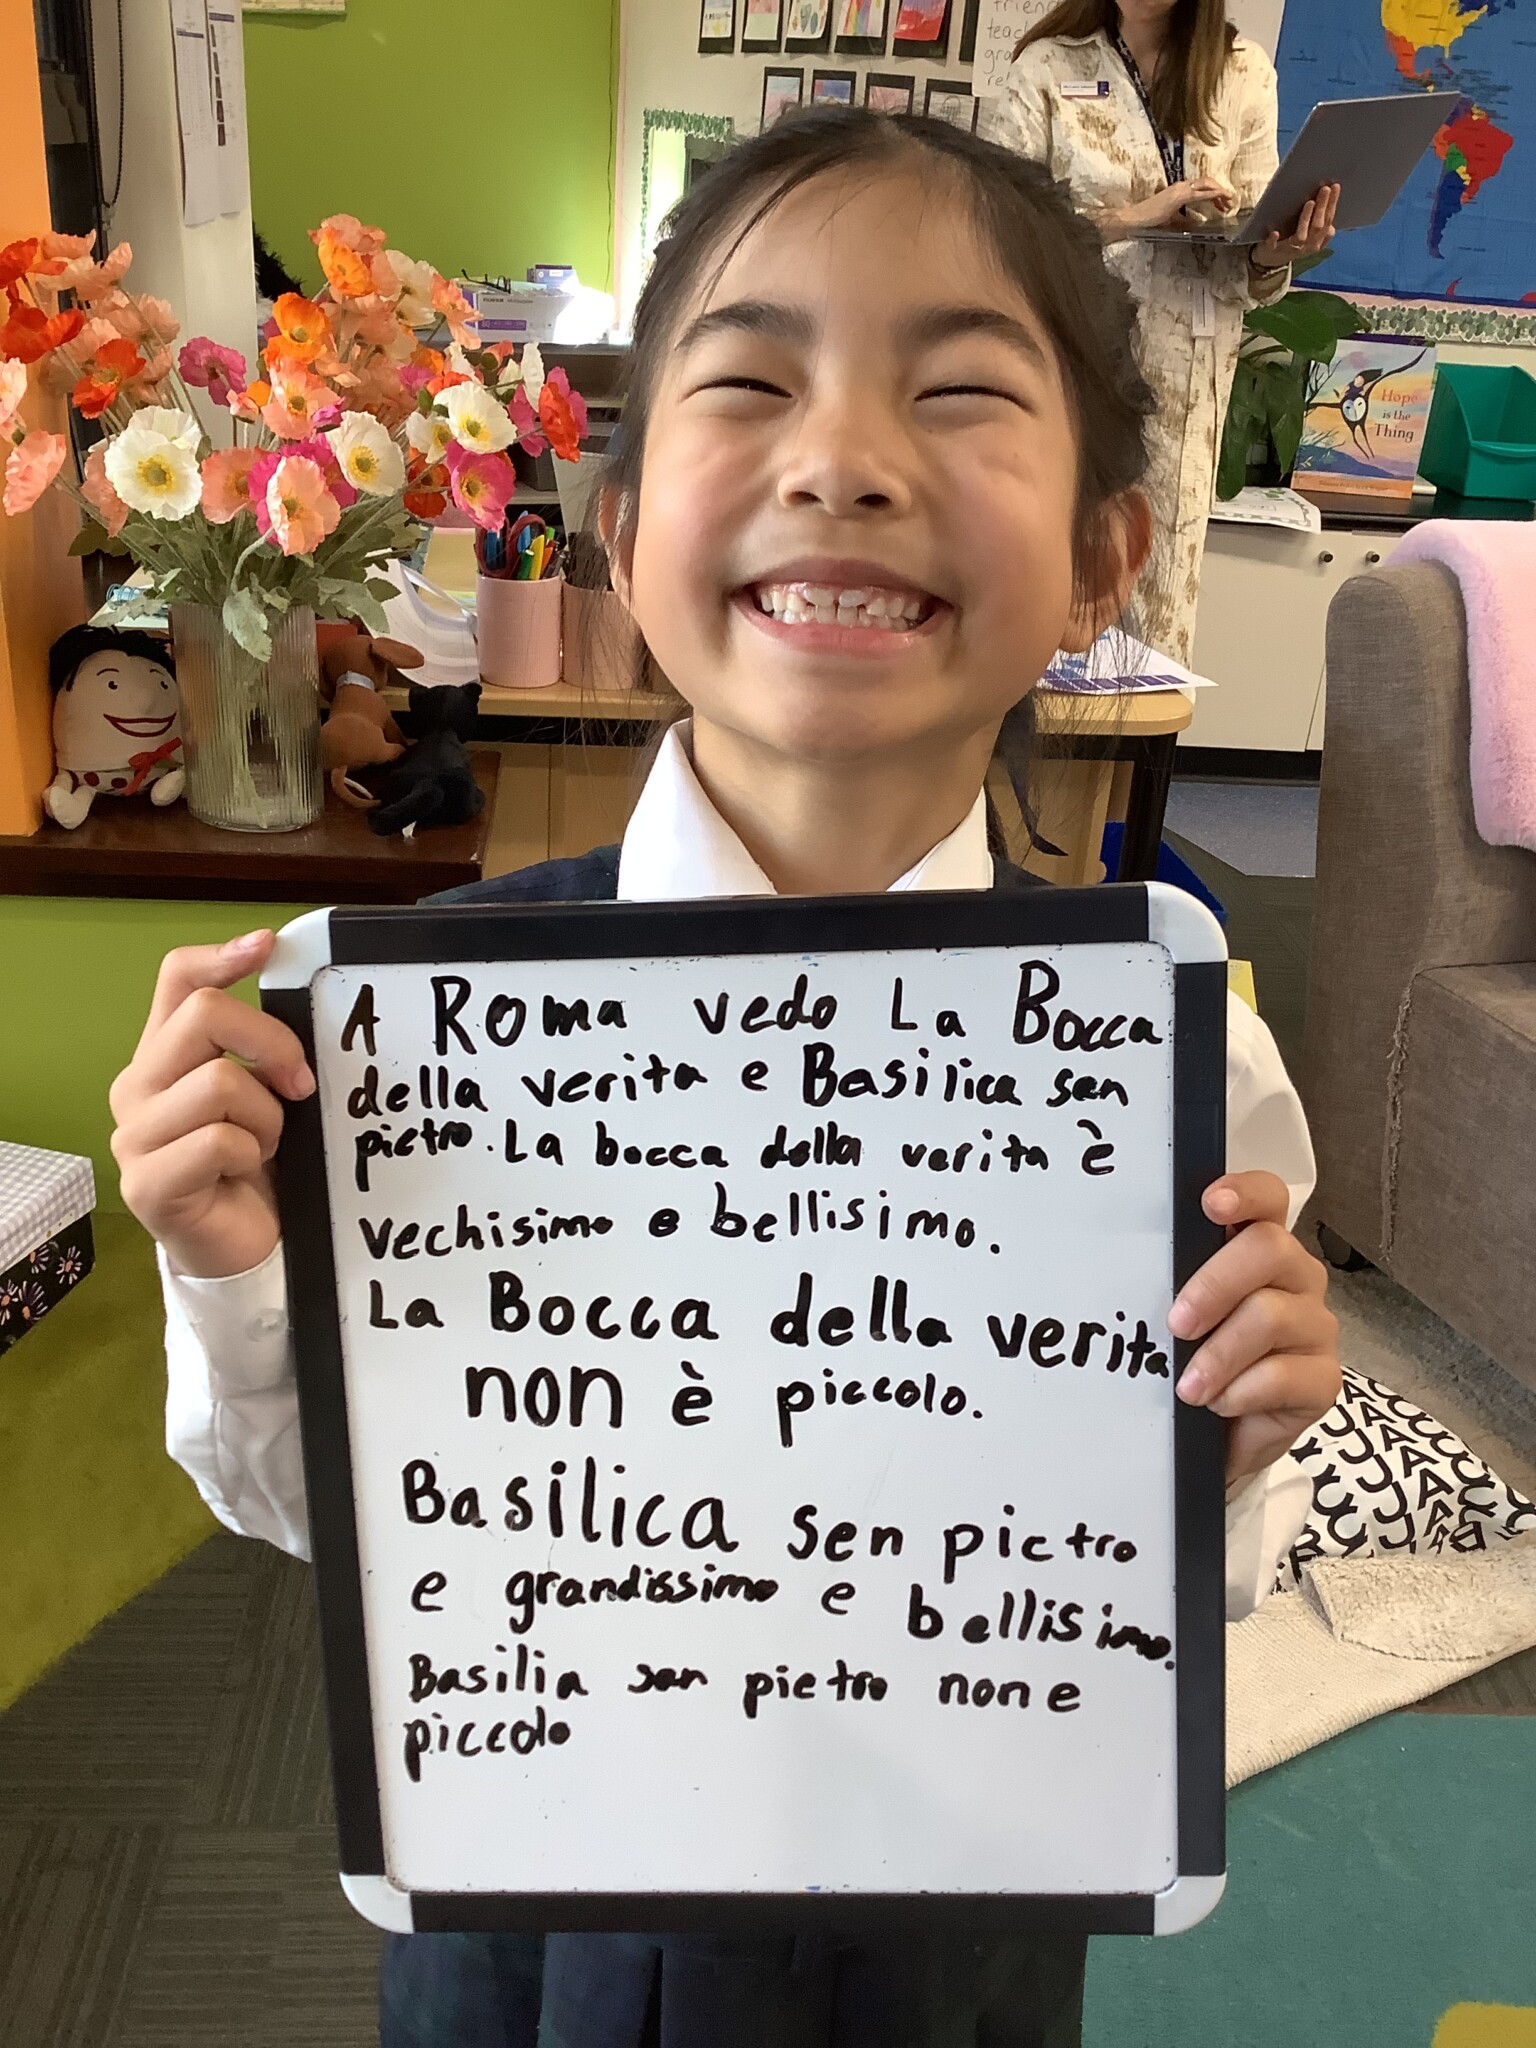 A Roma vedo La Bocca
della verita e Basilica san
pietro. La bocca della verita è
vechisimo e bellisimo.
La Bocca della verita
non è piccolo.
Basilica sen pietro
e grandissimo e bellisimo.
Basilia san pietro non e
piccolo
Hope
is the
Thing